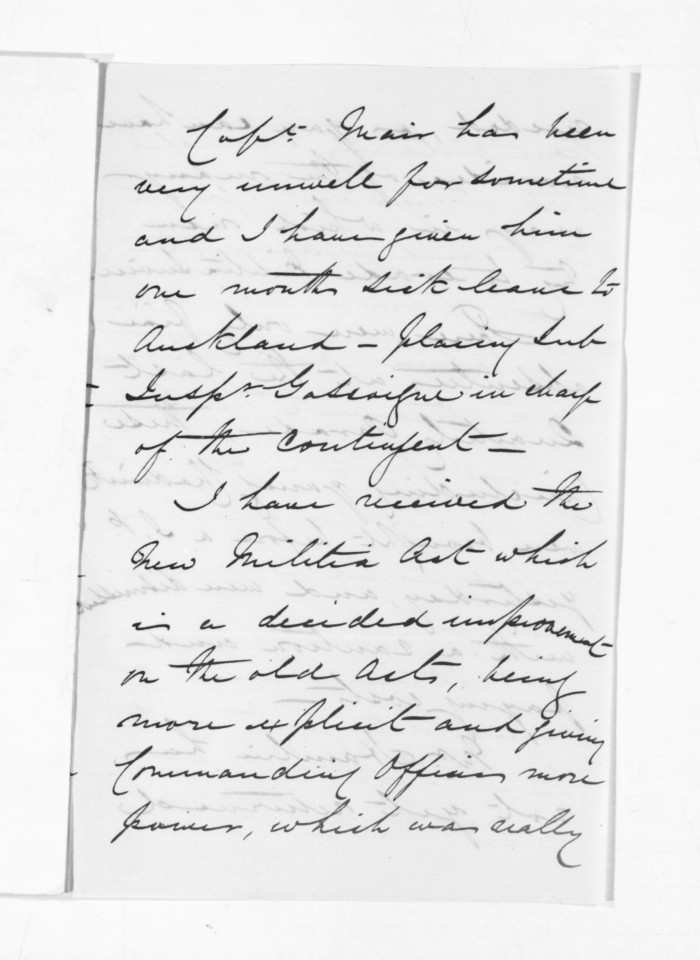 Capt. Mair has been
very unwell for sometime
and I have given him
one months sick leave to
Auckland – placing Sub
Inspr. Gascoigne in charge
of the contingent –
I have received the
New Militia Act which
is a decided improvement
on the old Acts, being
more explicit and giving
Commanding Officers more
power, which was really